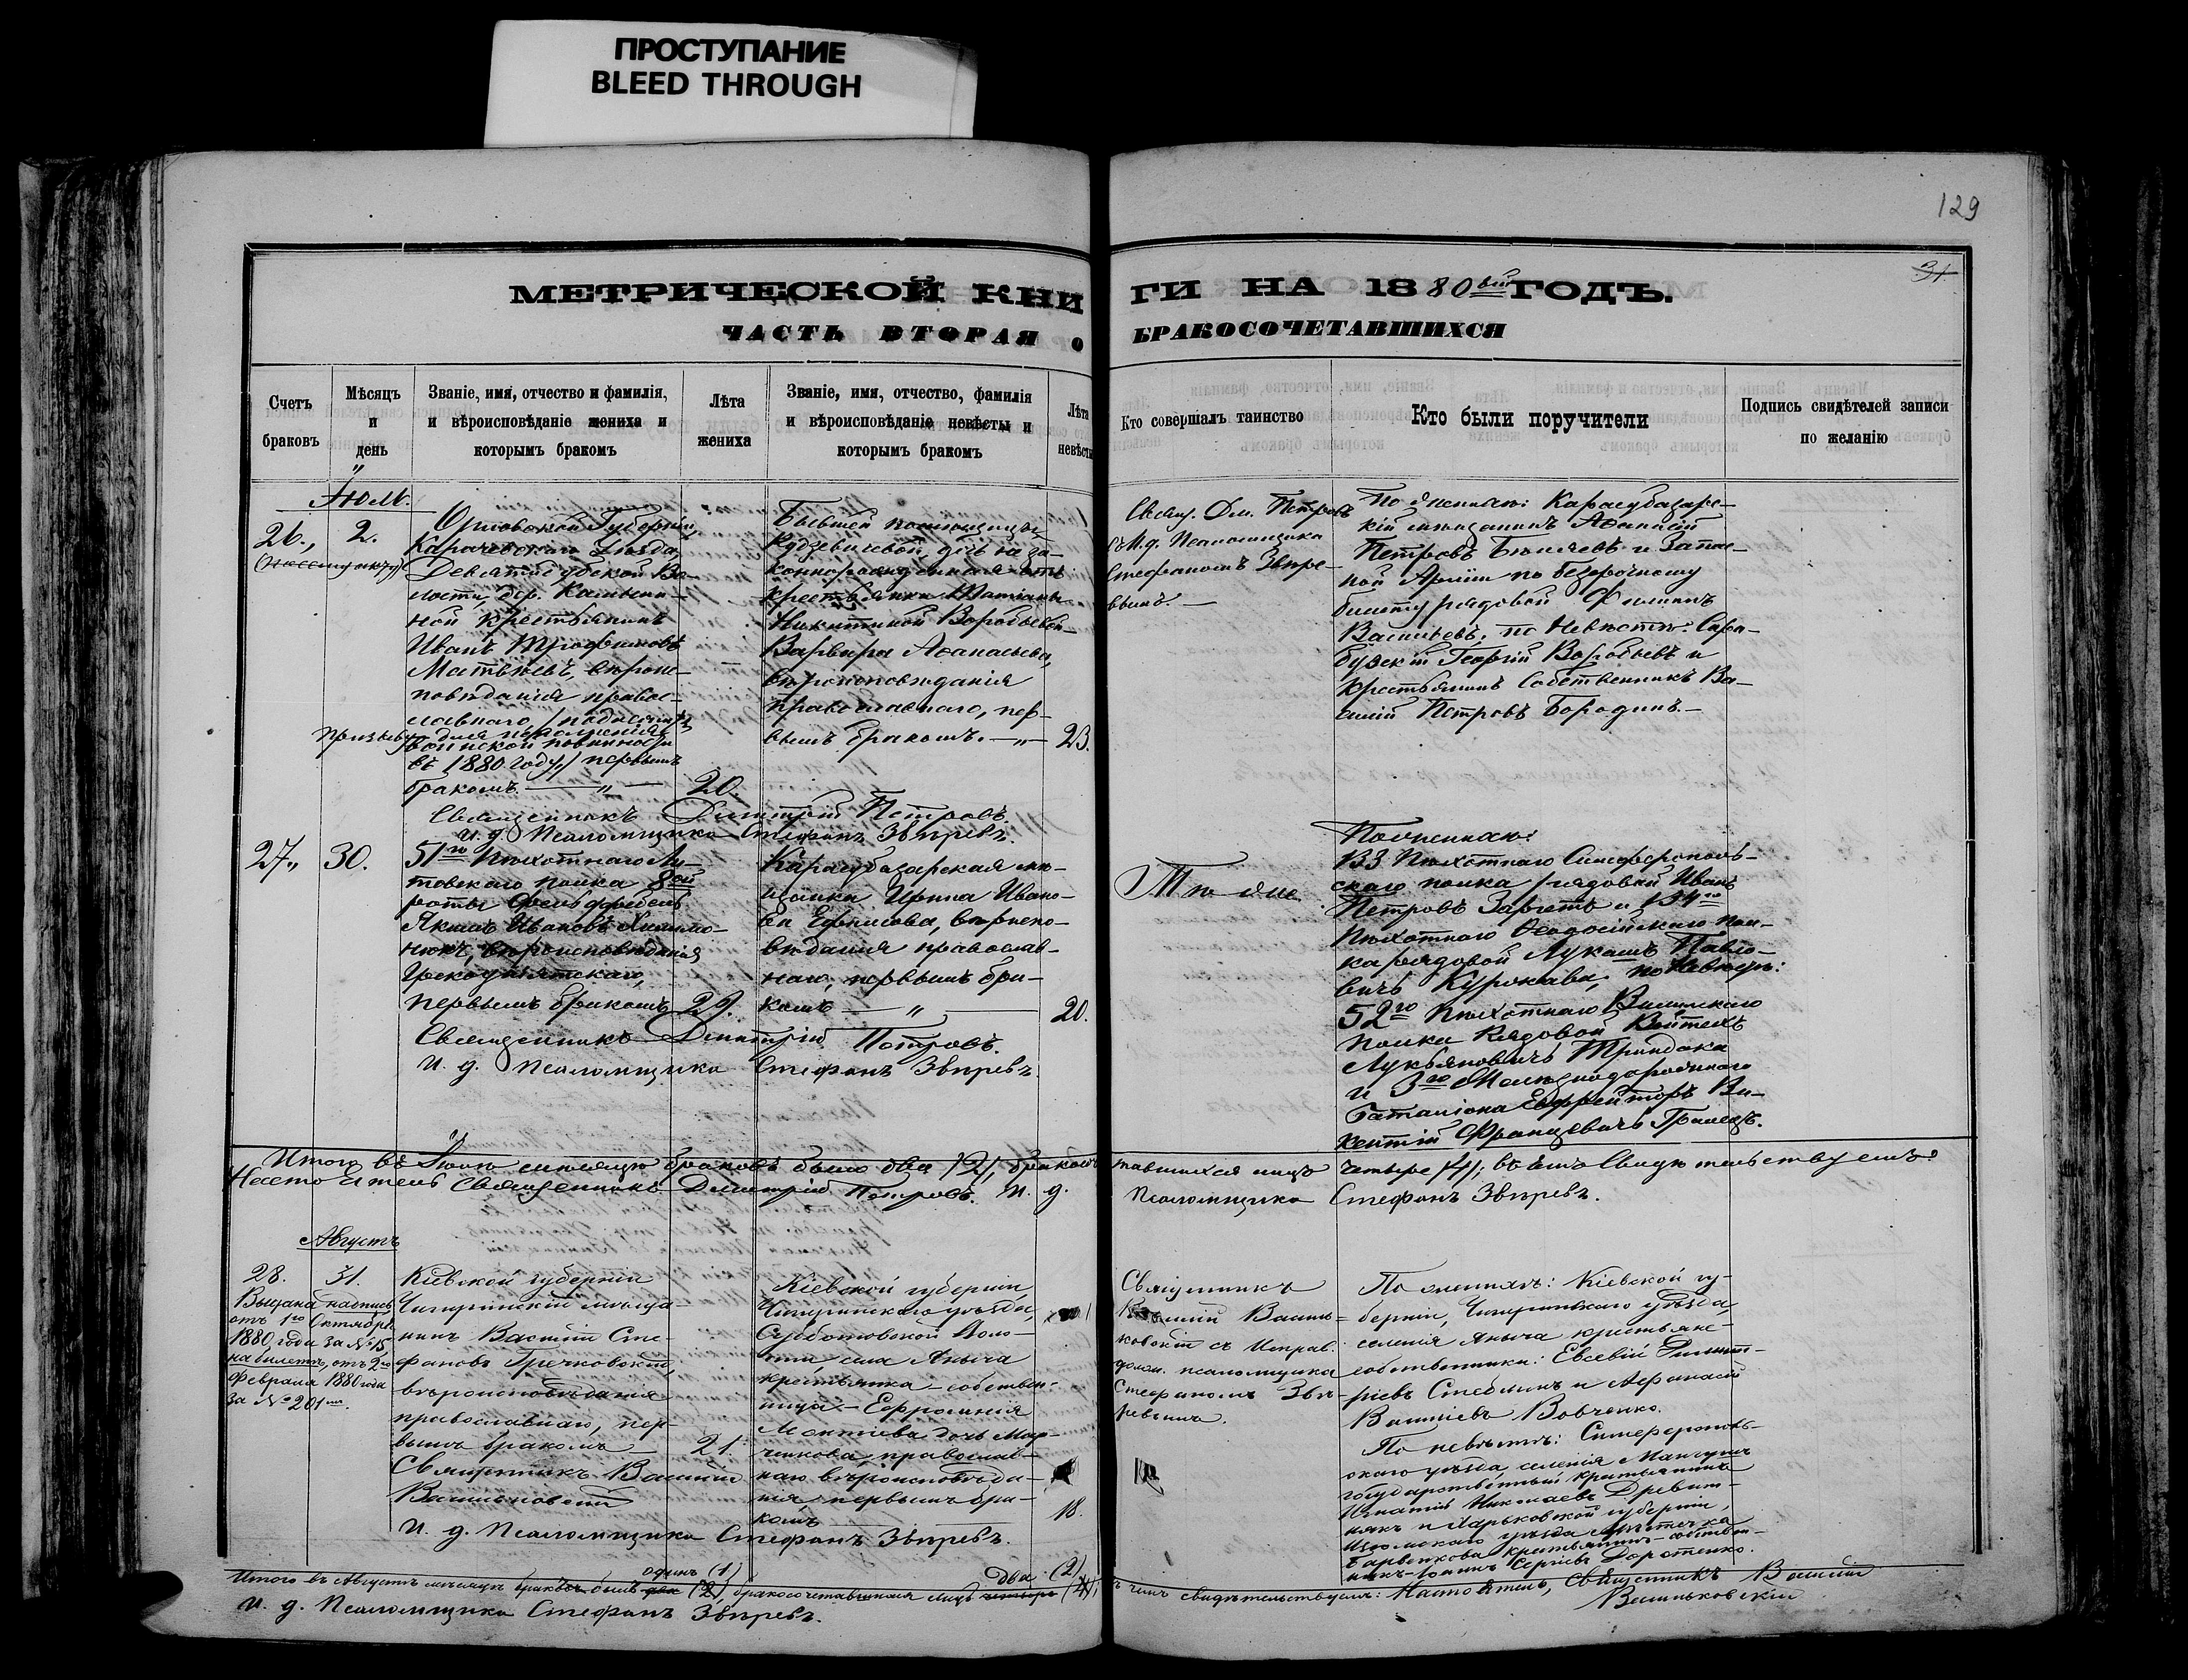 ПРОСТУПАНИЕ
BLEED THROUGH
129
31
МЕТРИЧЕСКОЙ КНИГИ НА 1880ый ГОДЪ.
ЧАСТЬ ВТОРАЯ О БРАКОСОЧЕТАВШИХСЯ
Счетъ браковъ
Мѣсяцъ и день
Званіе, имя, отчество и фамилія,
и вѣроисповѣданіе жениха и
которымъ бракомъ
Лѣта жениха
Званіе, имя, отчество, фамилія
и вѣроисповѣданіе невѣсты и
которымъ бракомъ
Лѣта невѣсты
Кто совершалъ таинство
Кто были поручители
Подпись свидѣтелей записи
по желанію
Іюль.
26., 2.
Орловской Губерніи,
Карачевскаго Уѣзда,
Во-
лости, дер.
ной крестьянинъ
Иванъ Трофимовъ
Матвѣевъ, вѣроис-
повѣданія правос-
лавнаго,
призыву для исполненія
воинской повинности
въ 1880 году,) первымъ
бракомъ. — „ —
20.
Бывшей помѣщицы
законнорожденная дочь
крестьянки Татіаны
Никитиной Воробьевой
Варвара Аѳанасьева,
вѣроисповѣданія
православнаго, пер-
вымъ бракомъ. — „ —
23.
Свящ. Дм. Петровъ
съ И. д. Псаломщика
Стефаномъ Звѣре-
вымъ. —
По женихѣ: Карасубазарс-
кій мѣщанинъ Аѳанасій
Петровъ Бѣляевъ и Запас-
ной Арміи по безсрочному
билету рядовой
Васильевъ; по Невѣстѣ:
Георгій Воробьевъ и
крестьянинъ Собственникъ Ва-
силій Петровъ Бородинъ. —
Священникъ Димитрій Петровъ.
И. д. Псаломщика Стефанъ Звѣревъ.
27„ 30.
51го Пѣхотнаго Ли-
товскаго полка 8ой
роты Фельдфебель
Якимъ Ивановъ
вѣроисповѣданія
Грекоуніятскаго,
первымъ бракомъ
29.
Карасубазарская мѣ-
щанка Ирина Ивано-
ва Ефимова, вѣроиспо-
вѣданія православ-
наго, первымъ бра-
комъ — „ —
20.
Тѣ же.
По женихѣ:
133 Пѣхотнаго Симферополь-
скаго полка рядовой Иванъ
Петровъ и 134го
Пѣхотнаго Ѳеодосійскаго пол-
ка рядовой Лукашъ Павло-
вичъ по Невѣстѣ:
52го Пѣхотнаго Виленскаго
полка Рядовой Войтехъ
Лукьяновичъ
и 3го
баталіона Ефрейторъ Ви-
кентій Францевичъ
Священникъ Димитрій Петровъ.
И. д. Псаломщика Стефанъ Звѣревъ.
Итого въ Іюлѣ мѣсяцѣ браковъ было два (2), бракосоче-
тавшихся лицъ четыре (4); въ чемъ Свидѣтельствуемъ:
Настоятель Священникъ Димитрій Петровъ. И. д.
Псаломщика Стефанъ Звѣревъ.
Августъ
28. 31.
Выдана надпись
отъ 1го Октября
1880 года за № 15,
на билетъ, отъ 2го
Февраля 1880 года
за № 201
Кіевской губерніи
Чигиринскій мѣща-
нинъ Василій Сте-
фановъ Гречковскій,
вѣроисповѣданія
православнаго, пер-
вымъ бракомъ
21.
Кіевской губерніи,
Чигиринскаго уѣзда,
Субботовской Воло-
сти, села Яныча
крестьянка-собствен-
ница Ефросинія
Леонтіева дочь
православ-
наго вѣроисповѣда-
нія, первымъ бра-
комъ
18.
Священникъ
Василій Василь-
ковскій съ Исправ.
долж. псаломщика
Стефаномъ Звѣ-
ревымъ.
По женихѣ: Кіевской гу-
берніи, Чигиринскаго уѣзда,
селенія Яныча крестьяне-
собственники: Евсевій Димит-
ріевъ и Аѳанасій
Василіевъ Вовченко.
По невѣстѣ: Симферополь-
скаго уѣзда, селенія Мангушъ
государственный крестьянинъ
Игнатій Николаевъ
и Харьковской губерніи,
Изюмскаго уѣзда
крестьянинъ-собствен-
никъ Іоаннъ Сергіевъ Доротенко.
Священникъ Василій
Васильковскій
И. д. Псаломщика Стефанъ Звѣревъ.
Итого въ Августѣ мѣсяцѣ браковъ былъ одинъ (1) два (2), бракосочетавшихся лицъ два (2) четыре (4),
въ чемъ свидѣтельствуемъ: Настоятель, Священникъ Василій
Васильковскій
И. д. Псаломщика Стефанъ Звѣревъ.